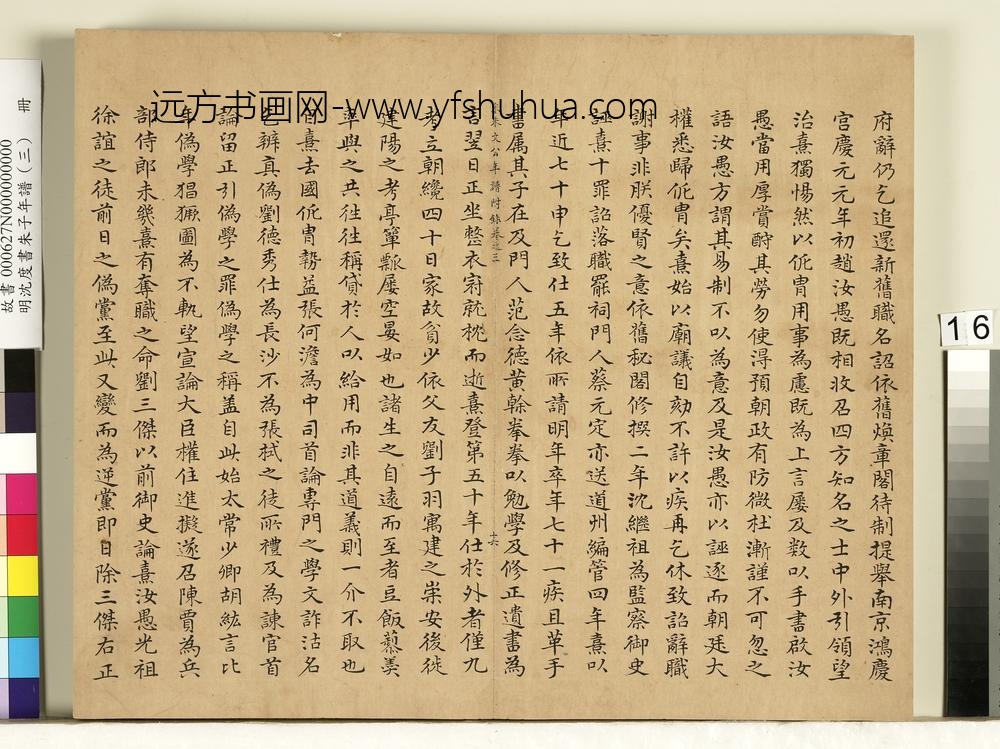 府辭仍乞追還新舊職名詔依舊煥章閣待制提舉南京鴻慶
宮慶元元年初趙汝愚既相收召四方知名之士中外引領望
治熹獨惕然以侂胄用事為慮既為上言屢及数以手書啟汝
愚當用厚賞酧其勞勿使淂預朝政有防微杜漸謹不可忽之
語汝愚方謂其易制不以為意及是汝愚亦以誣逐而朝廷大
權悉歸侂胄矣熹始以廟議自劾不許以疾再乞休致詔辭職
謝事非朕優賢之意依舊秘閣修撰二年沈繼祖為監察御史
誣熹十罪詔落職罷祠門人蔡元定亦送道州編管四年熹以
年近七十申乞致仕五年依所請明年卒年七十一疾且革手
書属其子在及門人范念德黄榦拳拳以勉學及修正遺書為
朱文公年譜附錄卷之三
十六
言翌日正坐整衣冠就枕而逝熹登第五十年仕於外者僅九
考立朝纔四十日家故貧少依父友劉子羽寓建之崇安後徙
建陽之考亭簞瓢屢空晏如也諸生之自遠而至者豆飯藜羹
率與之共往往稱貸於人以給用而非其道義則一介不取也
自熹去國侂胄勢益張何澹為中司首論專門之學文詐沽名
乞辨真偽劉德秀仕為長沙不為張栻之徒所禮及為諫官首
論留正引偽學之罪偽學之稱盖自此始太常少卿胡紘言比
年偽學猖獗圖為不軌望宣論大臣權住進擬遂召陳賈為兵
部侍郎未幾熹有奪職之命劉三傑以前御史論熹汝愚光祖
徐誼之徒前日之偽黨至此又變而為逆黨即日除三傑右正
远方书画网-www.yfshuhua.com
故書 000627N000000000 冊
明沈度書朱子年譜(三)
16